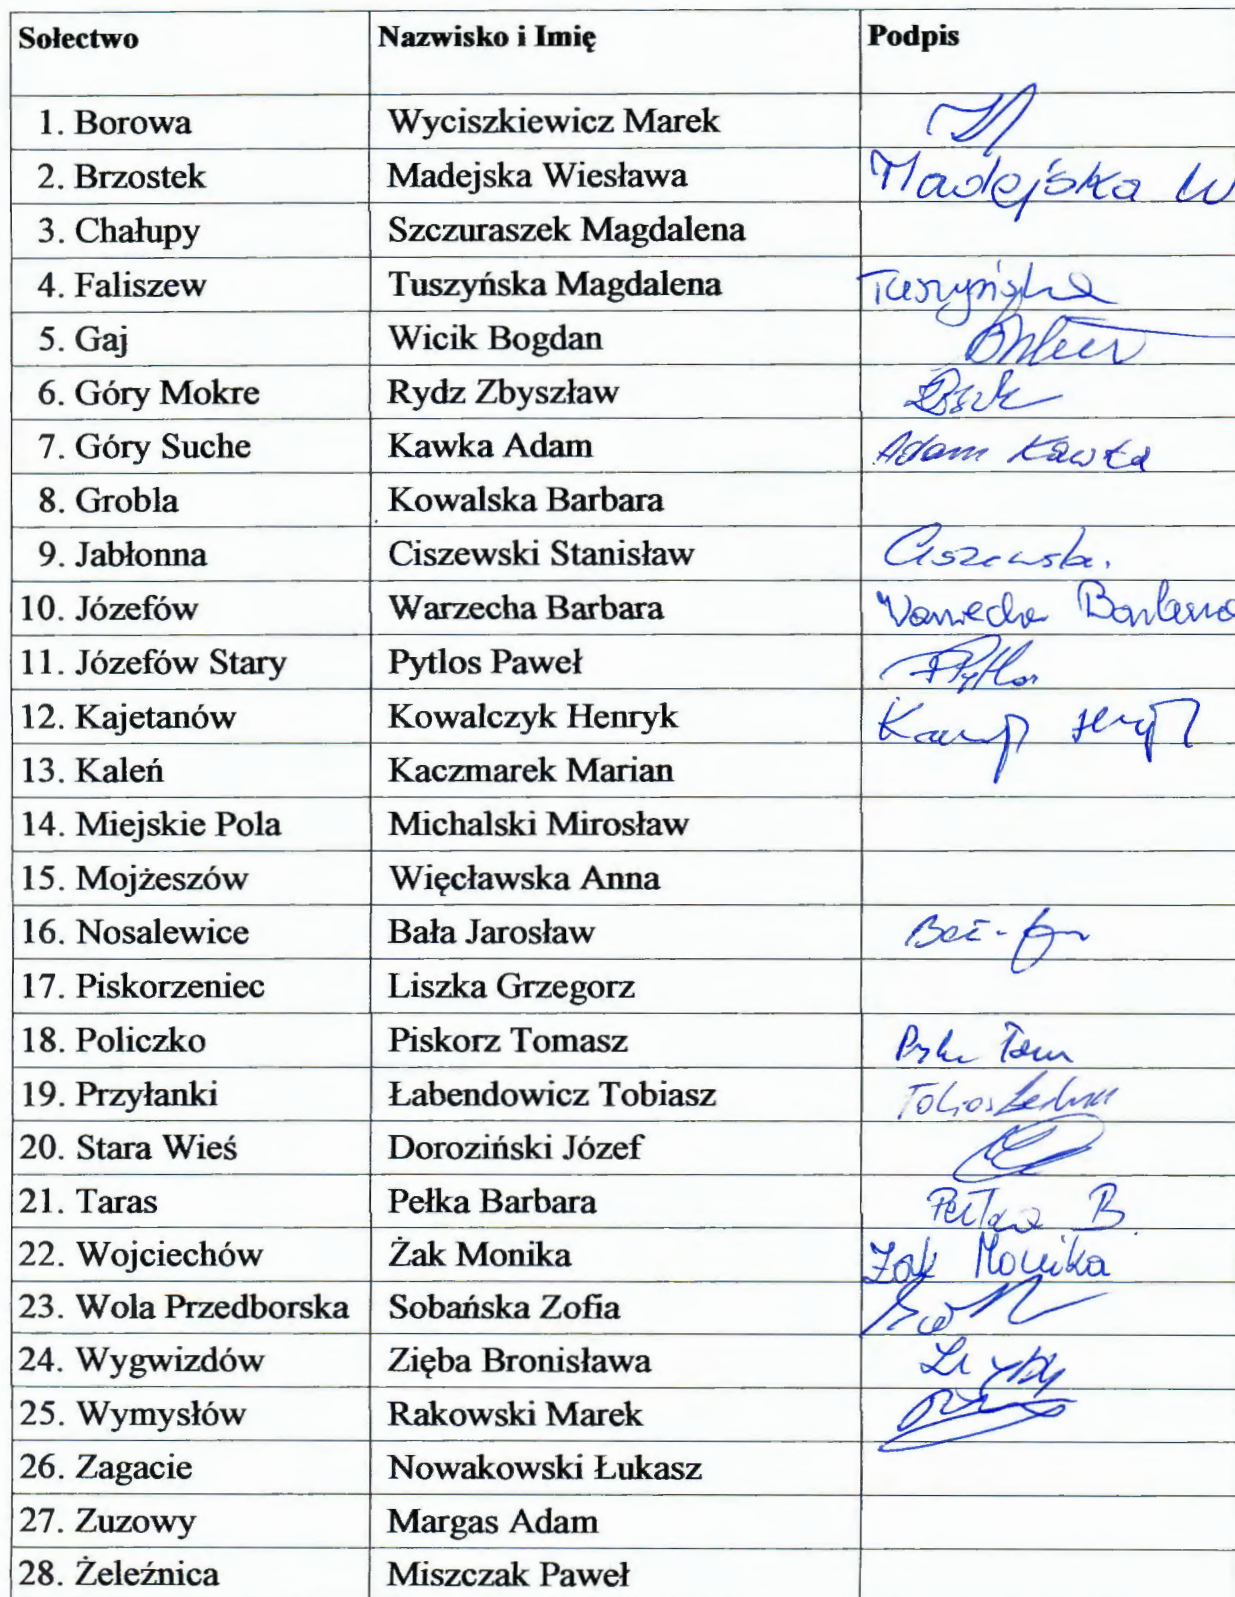 Sołectwo Nazwisko i Imię Podpis
1. Borowa Wyciszkiewicz Marek
2. Brzostek Madejska Wiesława Madejska W
3. Chałupy Szczuraszek Magdalena
4. Faliszew Tuszyńska Magdalena Tuszyńska
5. Gaj Wicik Bogdan
6. Góry Mokre Rydz Zbyszław
7. Góry Suche Kawka Adam Adam Kawka
8. Grobla Kowalska Barbara
9. Jabłonna Ciszewski Stanisław
10. Józefów Warzecha Barbara Warzecha Barbara
11. Józefów Stary Pytlos Paweł
12. Kajetanów Kowalczyk Henryk
13. Kaleń Kaczmarek Marian
14. Miejskie Pola Michalski Mirosław
15. Mojżeszów Więcławska Anna
16. Nosalewice Bała Jarosław
17. Piskorzeniec Liszka Grzegorz
18. Policzko Piskorz Tomasz
19. Przyłanki Łabendowicz Tobiasz
20. Stara Wieś Doroziński Józef
21. Taras Pełka Barbara Pełka B
22. Wojciechów Żak Monika Żak Monika
23. Wola Przedborska Sobańska Zofia
24. Wygwizdów Zięba Bronisława
25. Wymysłów Rakowski Marek
26. Zagacie Nowakowski Łukasz
27. Zuzowy Margas Adam
28. Żeleźnica Miszczak Paweł